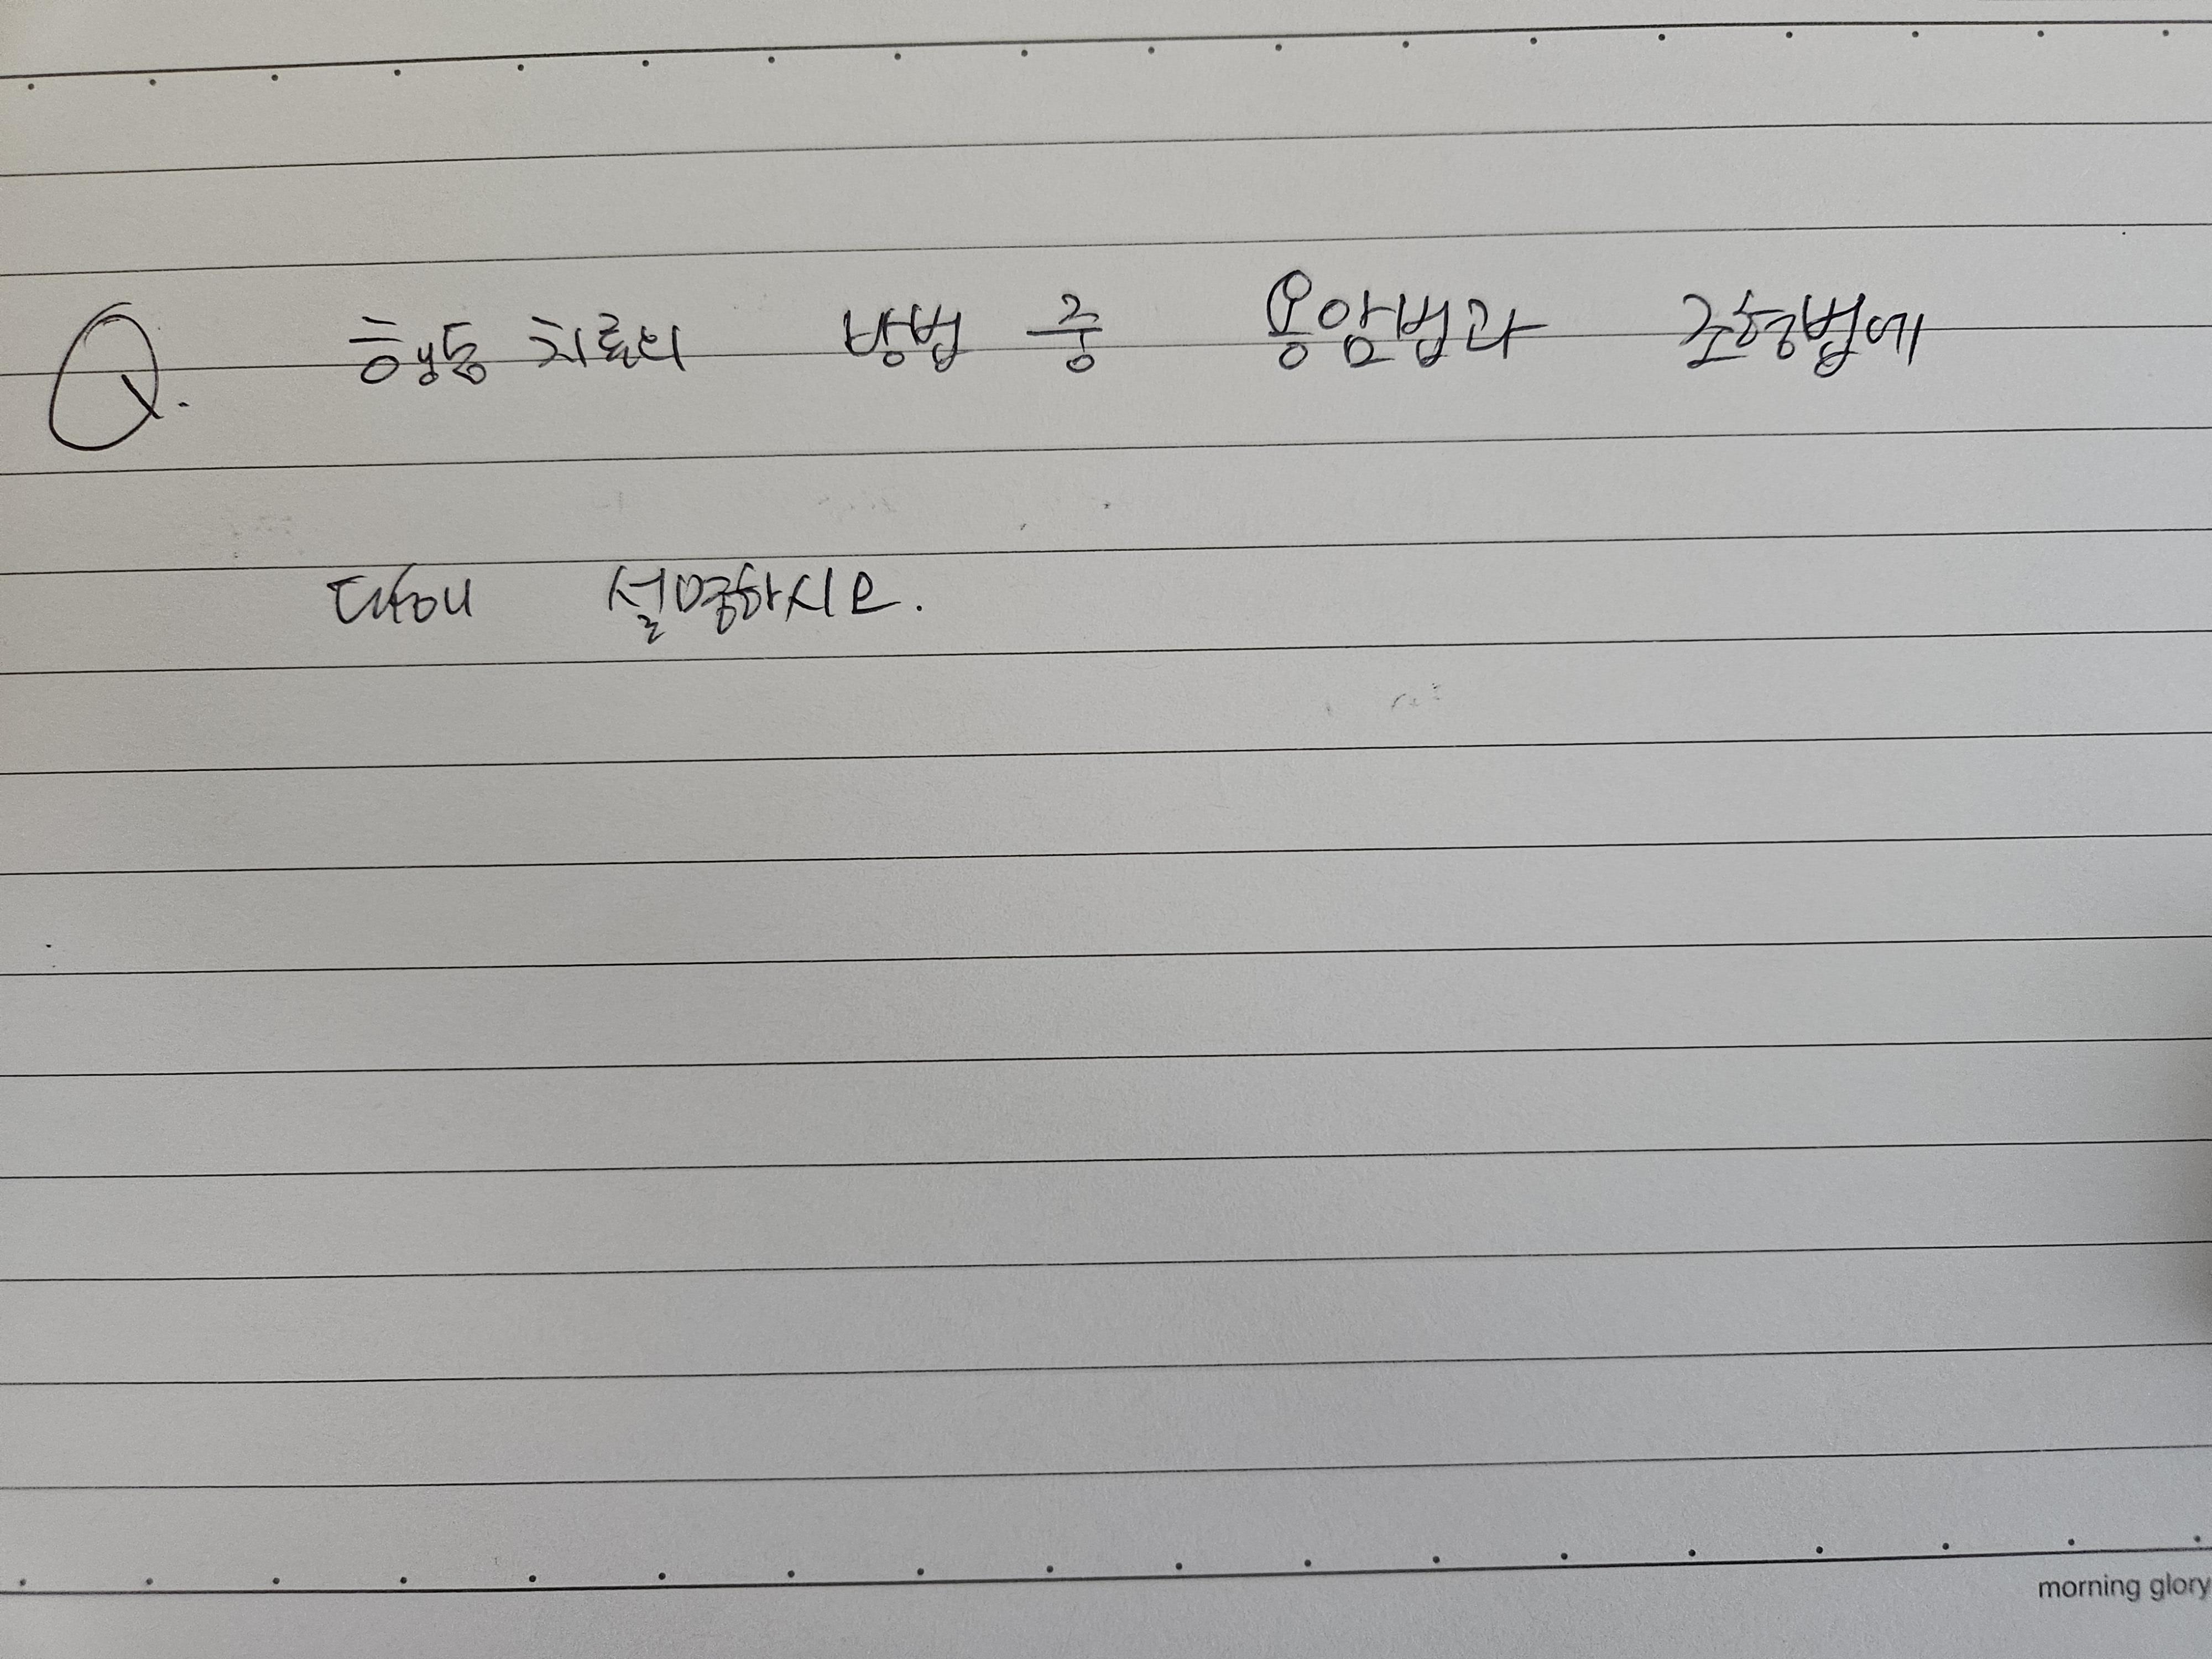 Q. 행동 치료의 방법 중 용암법과 조형법에
대해 설명하시오.
morning glory